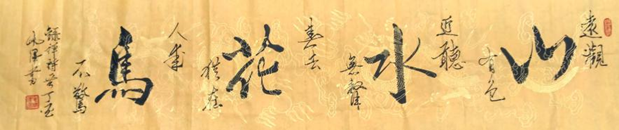 遠觀
山
有色
近聽
水
無聲
春去
花
猶在
人來
鳥
不驚